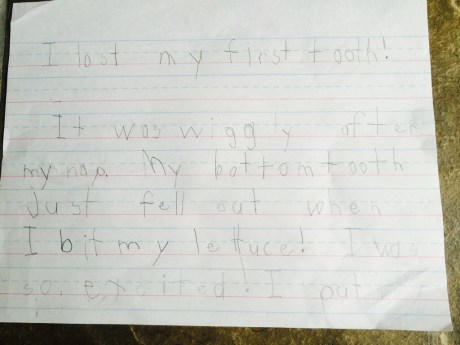 I lost my first tooth!
It was wiggly after
my nap. My bottom tooth
Just fell out when
I bit my lettuce! I was
so, excited! I put